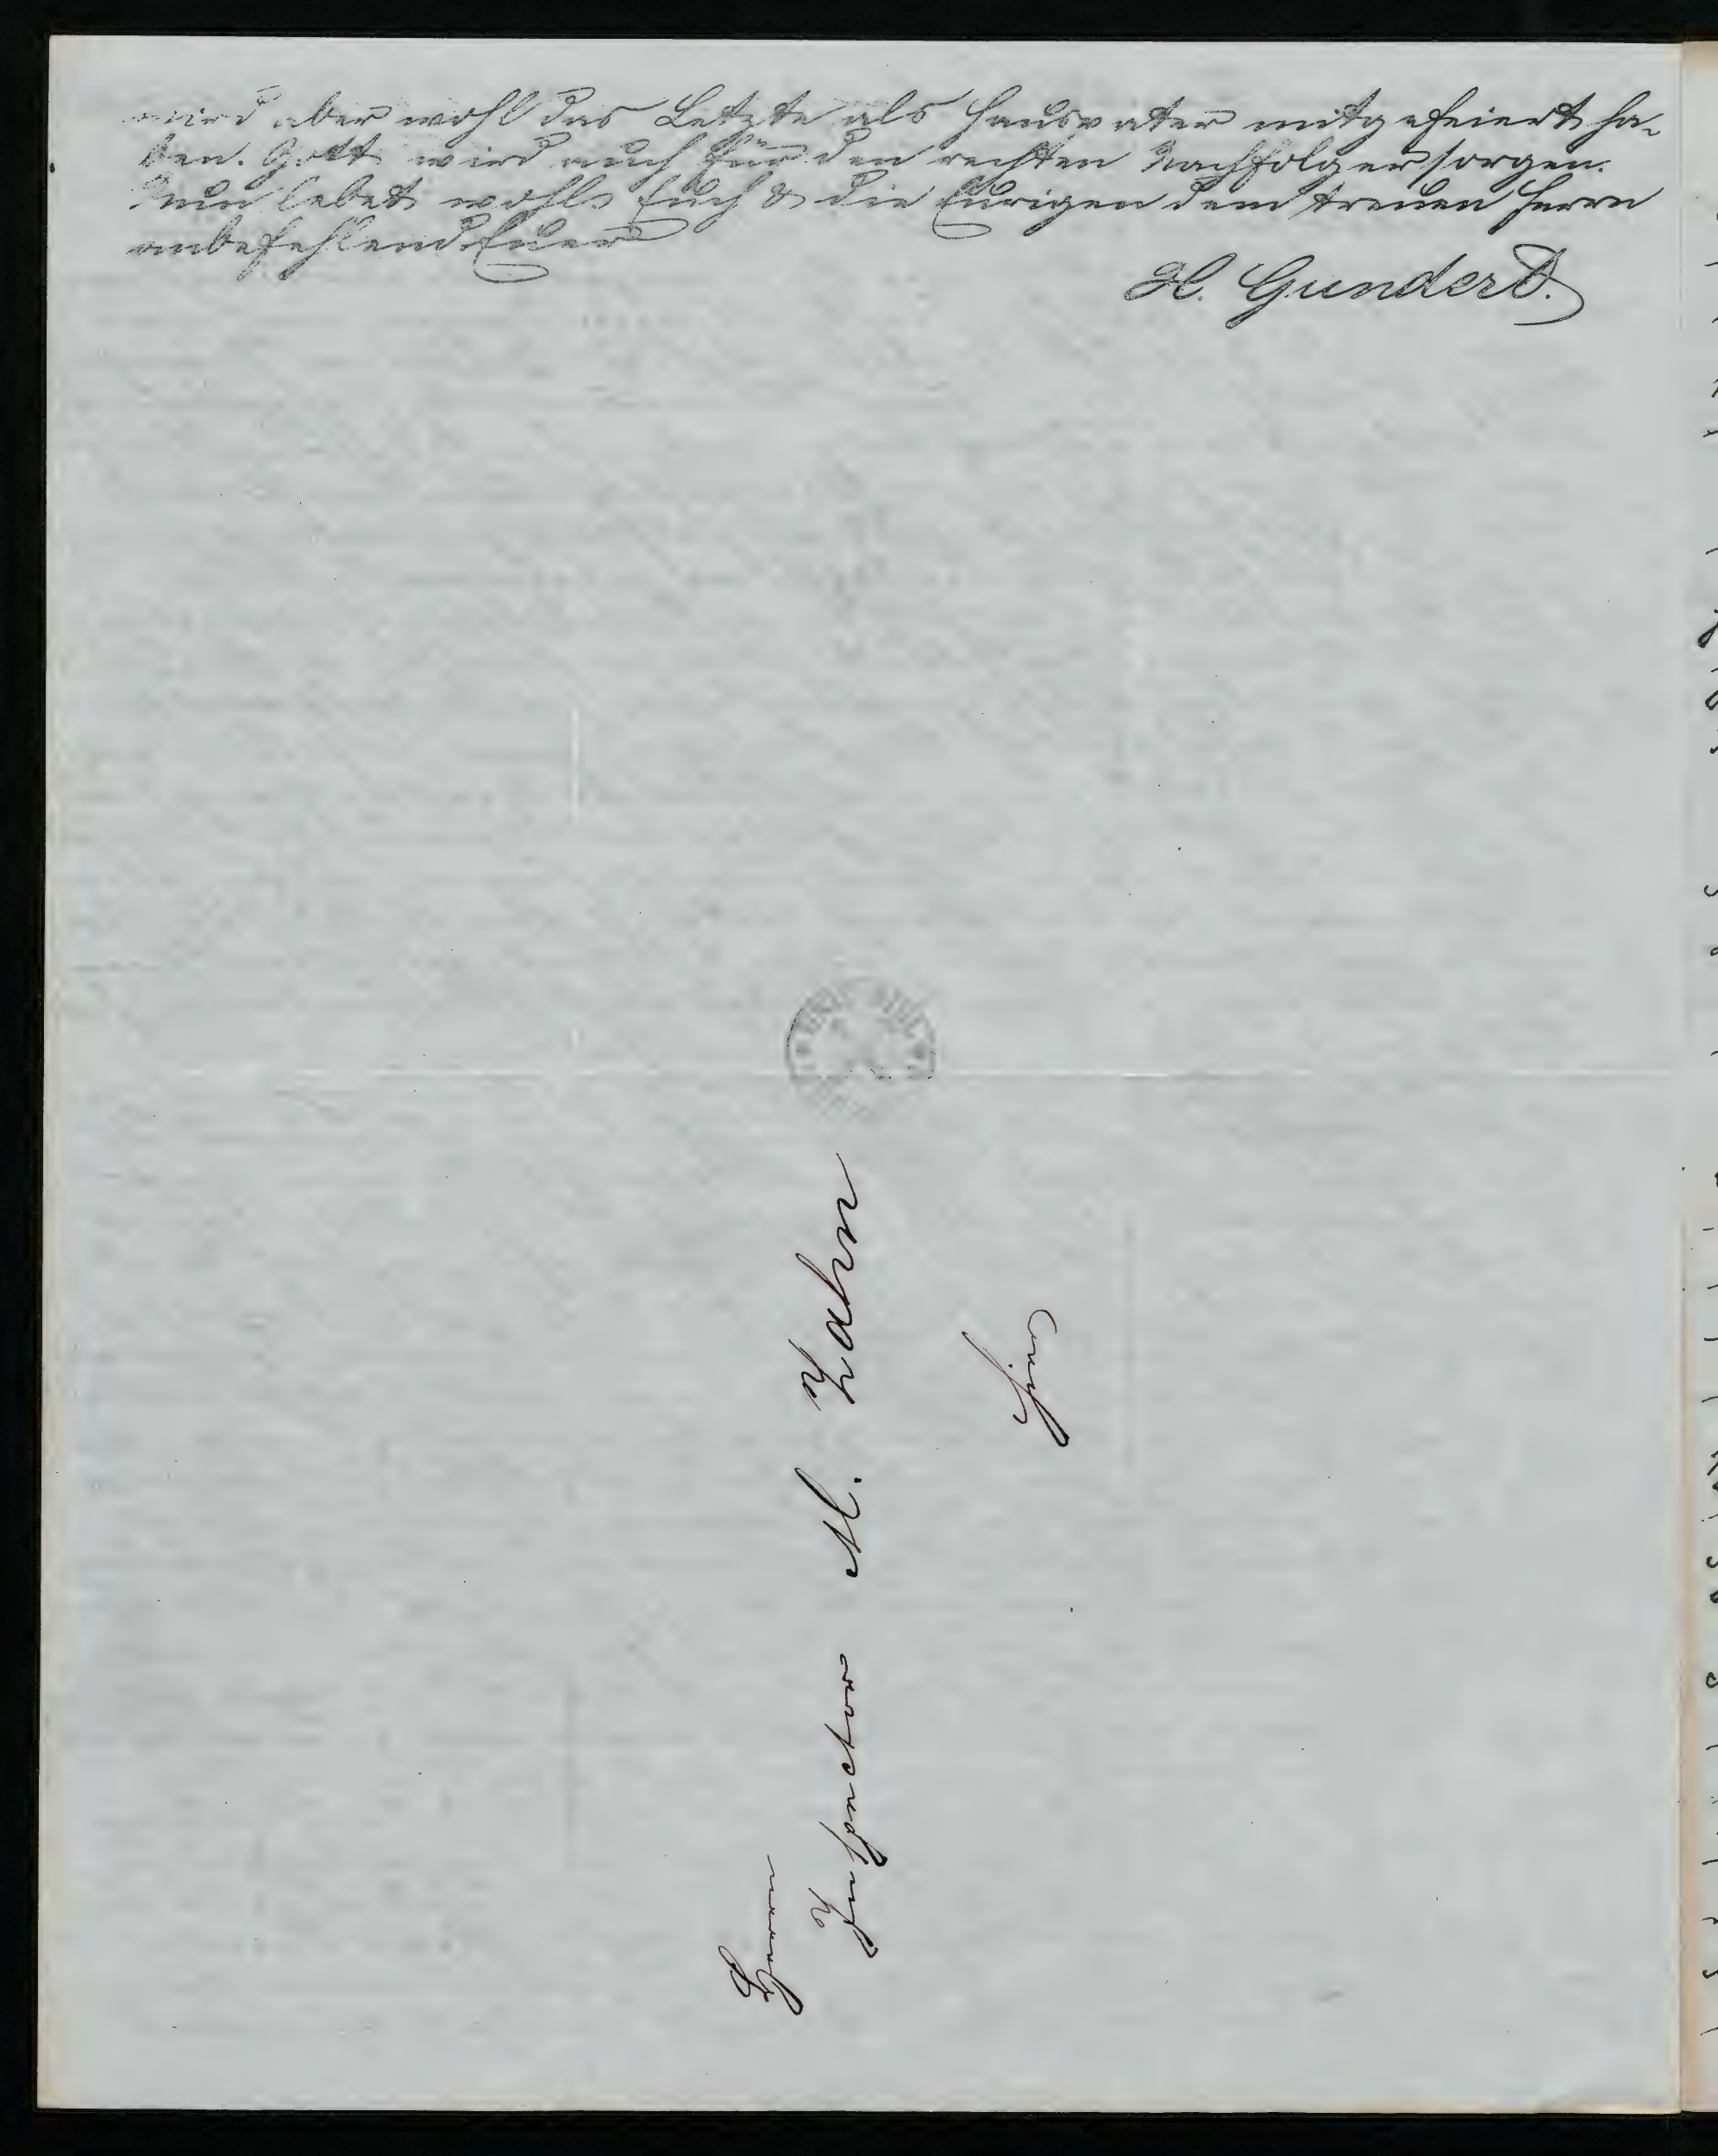 wird aber wohl das Letzte als Hausvater mitgefeiert ha-
ben. Gott wird auch für den rechten Nachfolger sorgen.
Nun lebet wohl, Euch & die Eurigen dem treuen Herrn
anbefehlend Euer
H. Gundert.
Herrn
Inspector M. Zahn
hier